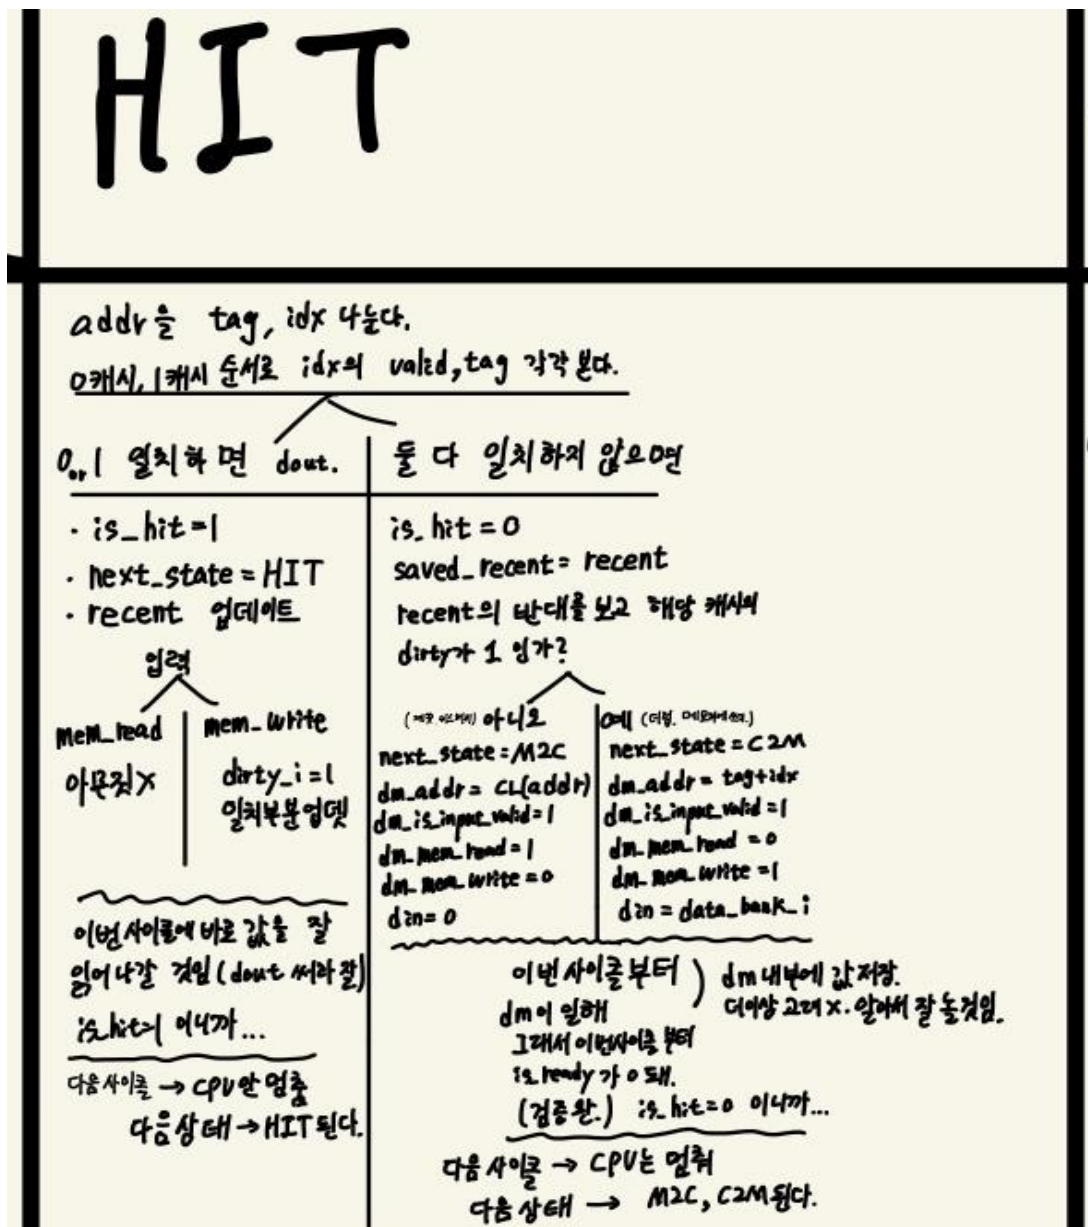 HIT
addr을 tag, idx 나눈다.
0캐시, 1캐시 순서로 idx의 valid, tag 각각 본다.
0 or 1 일치하면 dout.
· is_hit=1
· next_state = HIT
· recent 업데이트
입력
mem_read
아무짓 X
mem_write
dirty_i = 1
일치부분업뎃
이번사이클에 바로 값을 잘
읽어 나갈 것임 (dout 써라 잘)
is_hit=1 이니까...
다음 사이클 → CPU 안 멈춤
다음 상태 → HIT 된다.
둘 다 일치하지 않으면
is_hit = 0
saved_recent = recent
recent의 반대를 보고 해당 캐시의
dirty가 1 인가?
아니오
next_state = M2C
dm_addr = CL(addr)
dm_is_input_valid = 1
dm_mem_read = 1
dm_mem_write = 0
din = 0
예
next_state = C2M
dm_addr = tag+idx
dm_is_input_valid = 1
dm_mem_read = 0
dm_mem_write = 1
din = data_bank_i
이번 사이클 부터
dm이 일해
) dm 내부에 값 저장.
더이상 고려 X. 알아서 잘 놀것임.
그래서 이번사이클 부터
is_ready 가 0 돼.
(검증완.) is_hit=0 이니까...
다음 사이클 → CPU는 멈춰
다음 상태 → M2C, C2M 된다.